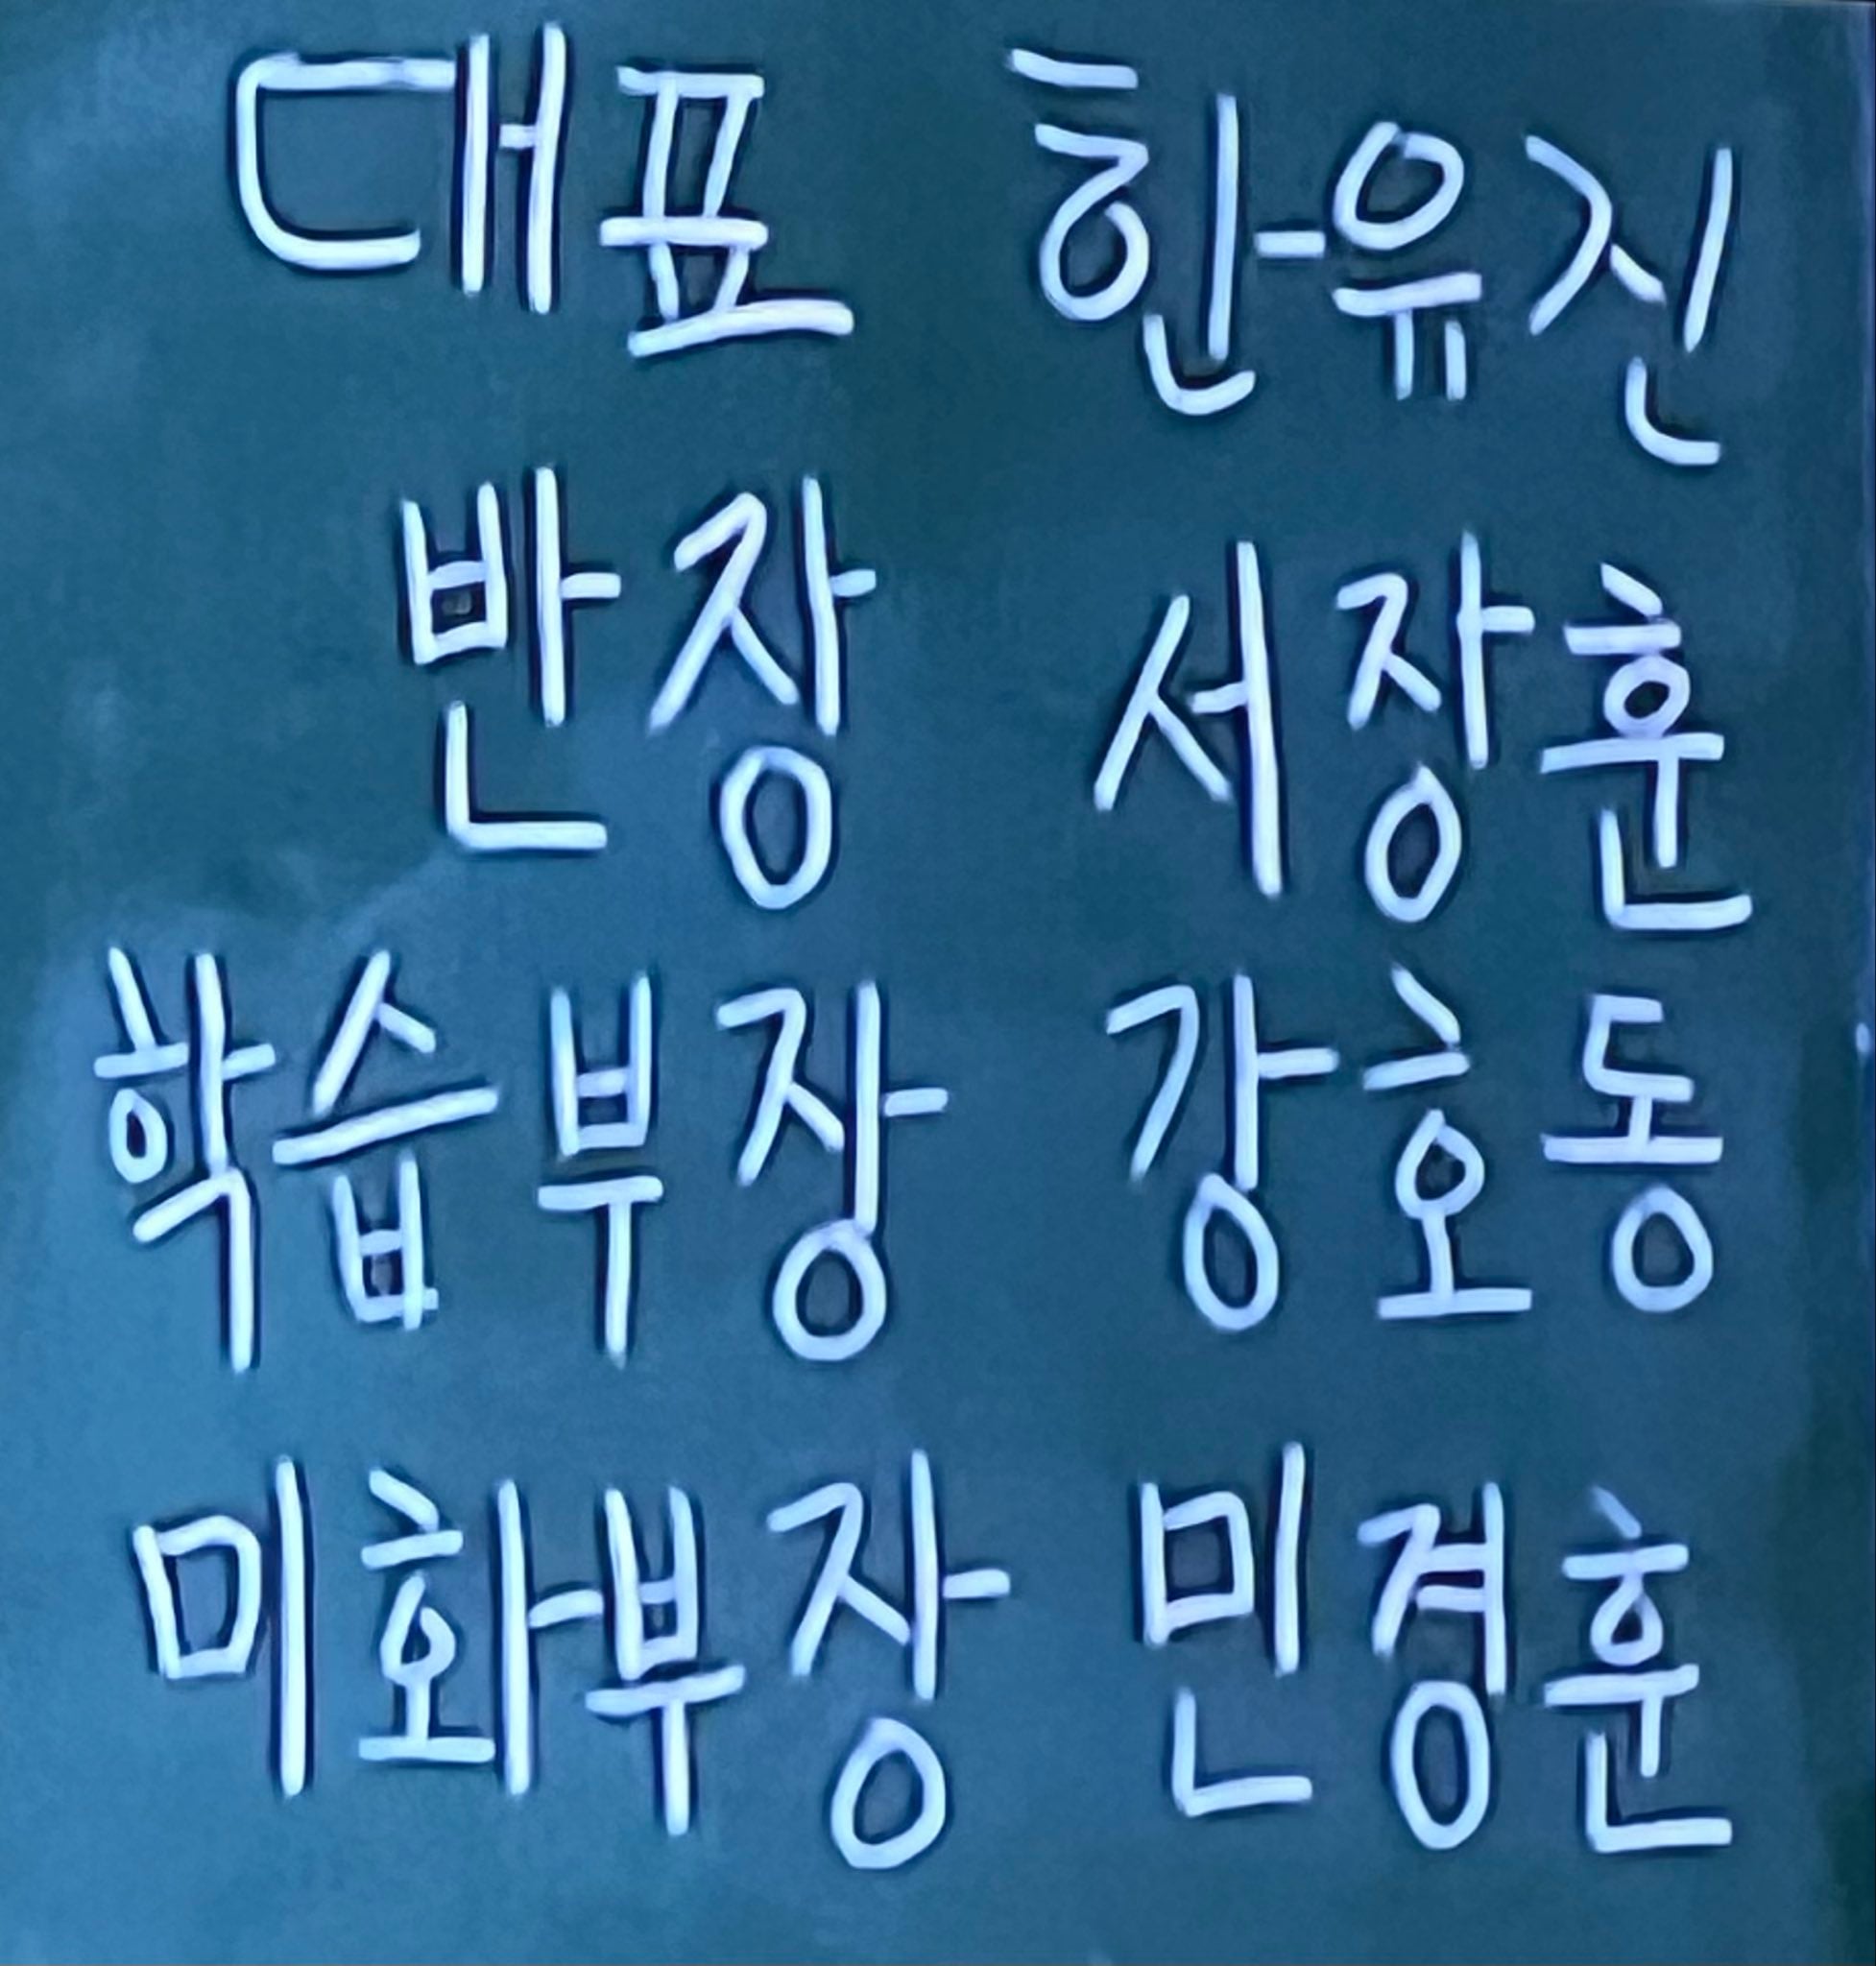 대표 한유진
반장 서장훈
학습부장 강호동
미화부장 민경훈